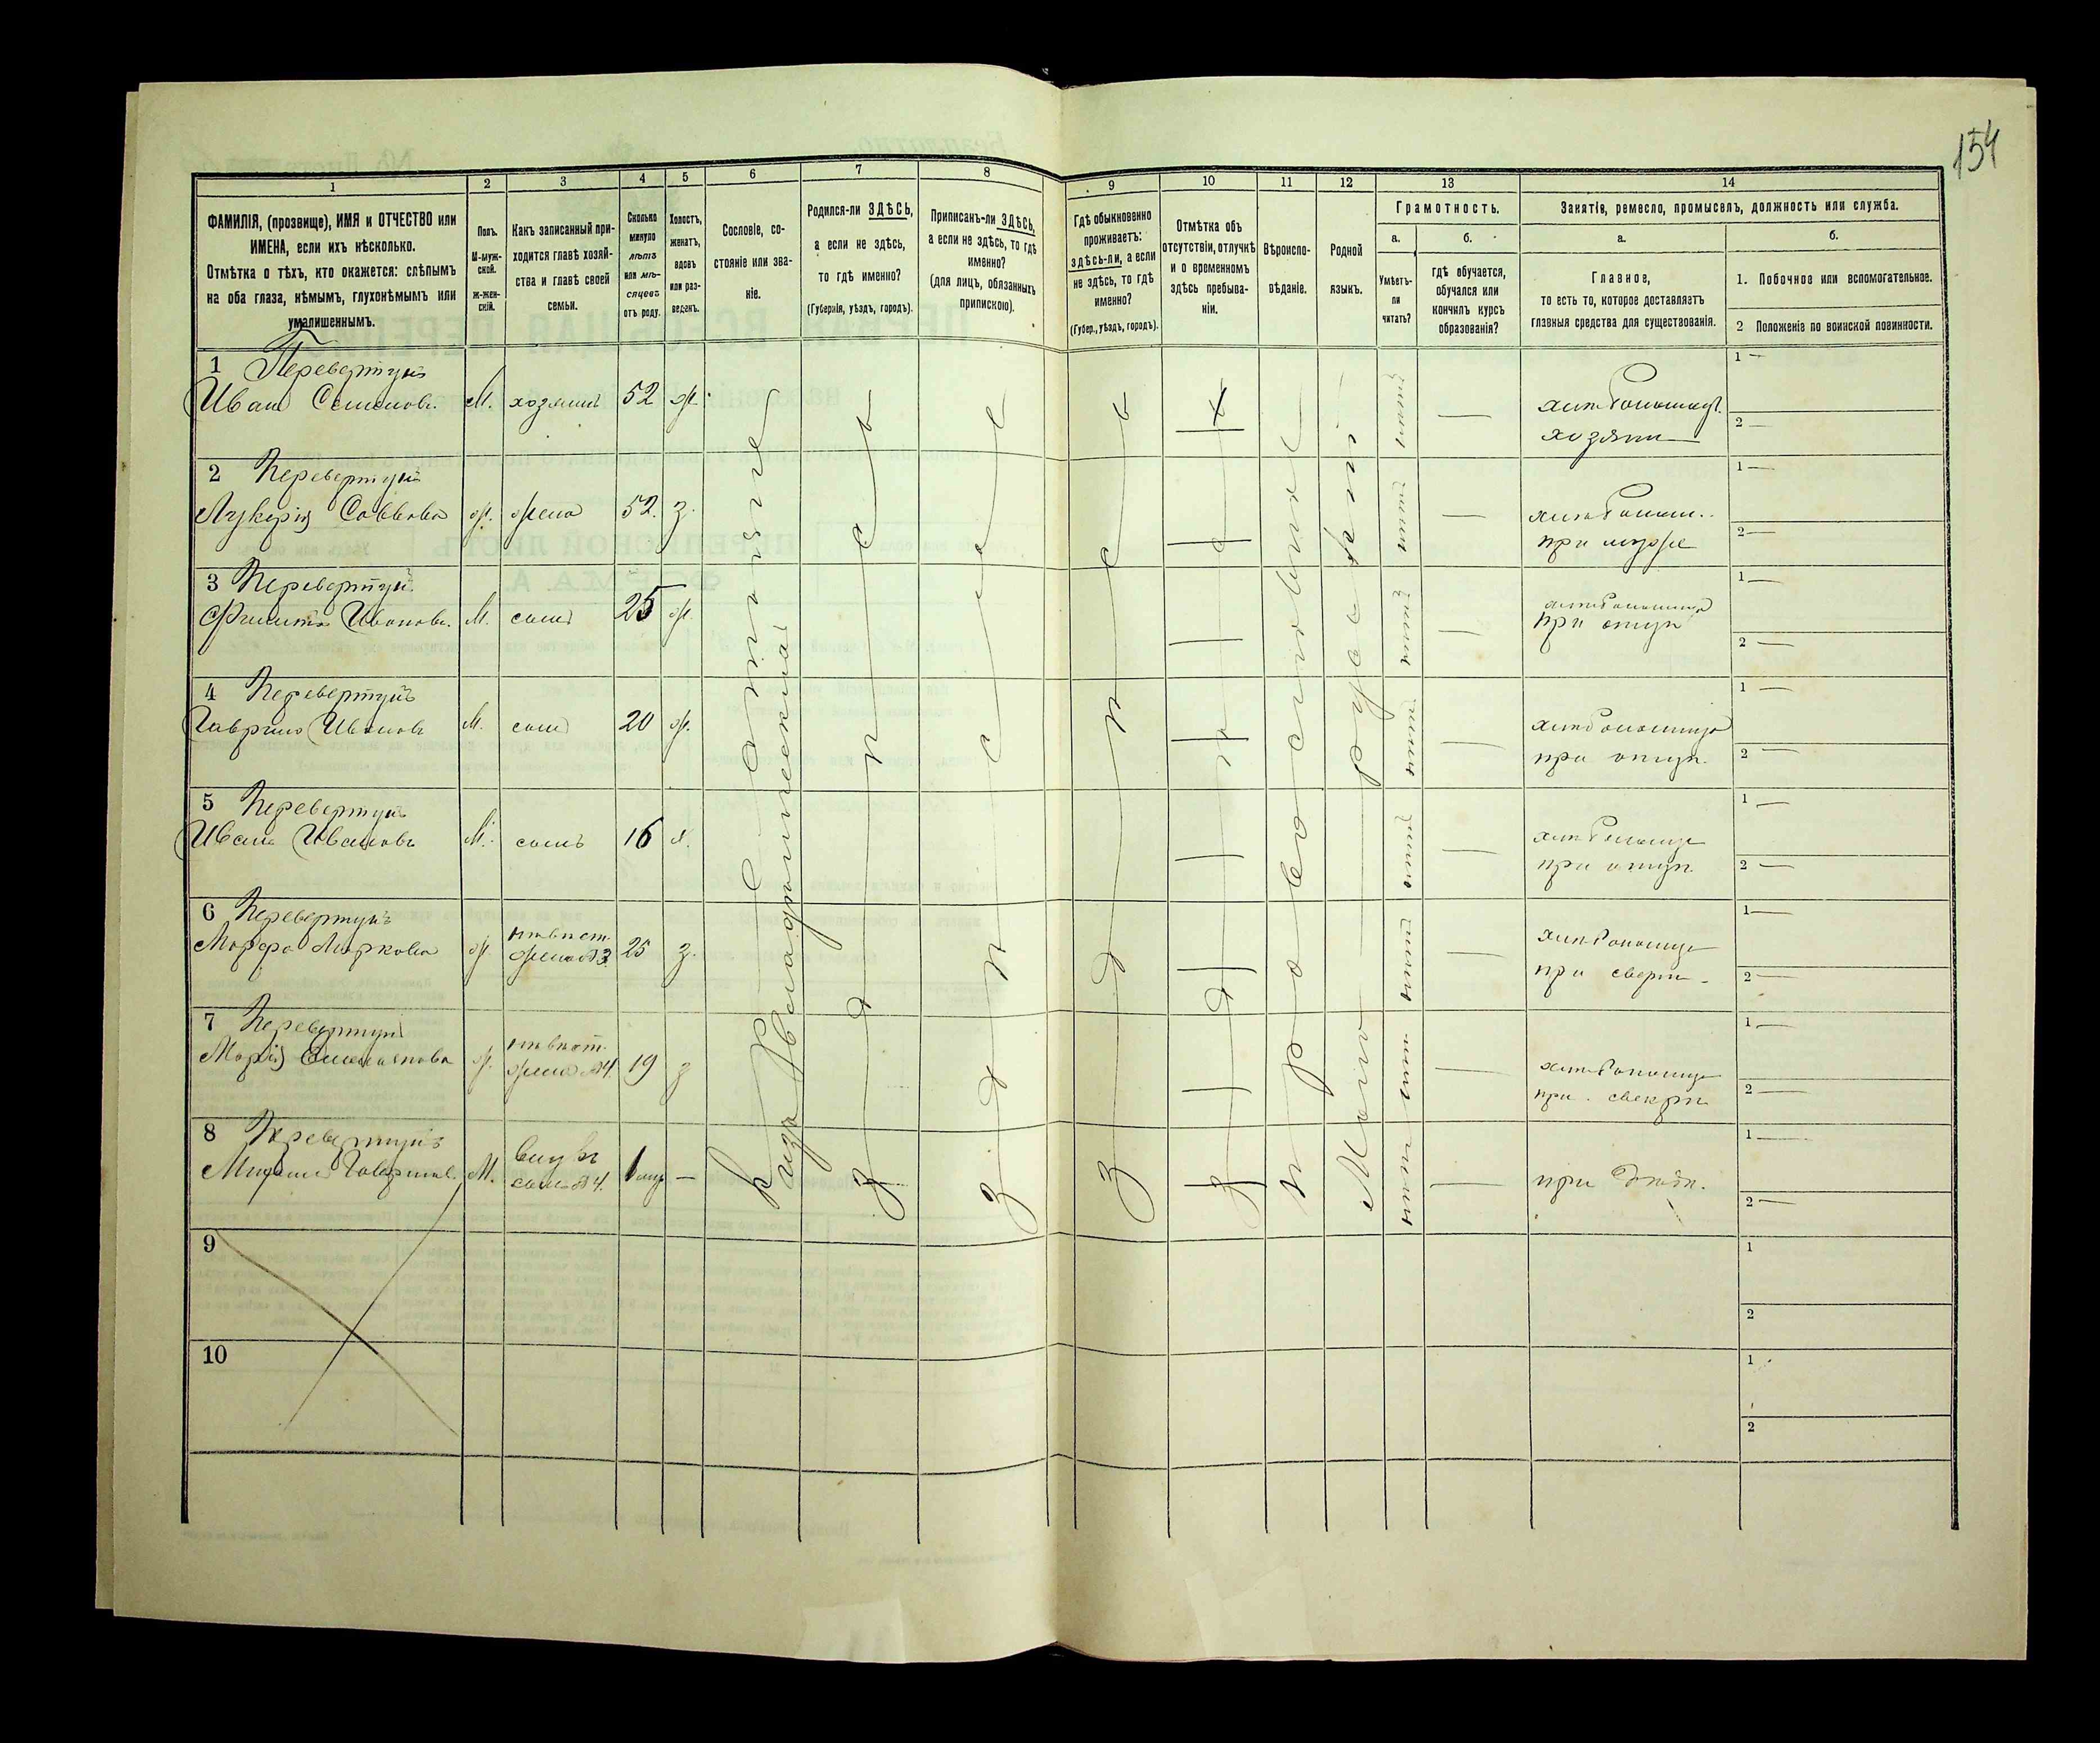 154
1
2
3
4
5
6
7
8
9
10
11
12
13
14
ФАМИЛІЯ, (прозвище), ИМЯ и ОТЧЕСТВО или
ИМЕНА, если ихъ нѣсколько.
Отмѣтка о тѣхъ, кто окажется: слѣпымъ
на оба глаза, нѣмымъ, глухонѣмымъ или
умалишеннымъ.
Полъ.
М-муж-
ской.
ж-жен-
скій.
Какъ записанный при-
ходится главѣ хозяй-
ства и главѣ своей
семьи.
Сколько
минуло
лѣтъ
или мѣ-
сяцевъ
отъ роду.
Холостъ,
женатъ,
вдовъ
или раз-
веденъ.
Сословіе, со-
стояніе или зва-
ніе.
Родился-ли ЗДѢСЬ,
а если не здѣсь,
то гдѣ именно?
(Губернія, уѣздъ, городъ).
Приписанъ-ли ЗДѢСЬ,
а если не здѣсь, то гдѣ
именно?
(для лицъ, обязанныхъ
припискою).
Гдѣ обыкновенно
проживаетъ:
здѣсь-ли, а если
не здѣсь, то гдѣ
именно?
(Губер., уѣздъ, городъ).
Отмѣтка объ
отсутствіи, отлучкѣ
и о временномъ
здѣсь пребыва-
ніи.
Вѣроиспо-
вѣданіе.
Родной
языкъ.
Грамотность.
а.
Умѣетъ-
ли
читать?
б.
гдѣ обучается,
обучался или
кончилъ курсъ
образованія?
Занятіе, ремесло, промыселъ, должность или служба.
а.
Главное,
то есть то, которое доставляетъ
главныя средства для существованія.
б.
1. Побочное или вспомогательное.
2 Положеніе по воинской повинности.
1 Перевертунъ
Иванъ Семеновъ. М. хозяинъ 52 ж. —
хозяинъ
1 —
2 —
2 Перевертунъ
Лукерія Саввова ж. жена 52. з. —
при мужѣ
1 —
2 —
3 Перевертунъ
Филиппъ Ивановъ. М. сынъ 25 ж. —
при отцѣ
1 —
2 —
4 Перевертунъ
Гаврило Ивановъ М. сынъ 20 ж. —
при отцѣ
1 —
2 —
5 Перевертунъ
Иванъ Ивановъ М. сынъ 16 х. —
при отцѣ
1 —
2 —
6 Перевертунъ
Марфа Маркова ж. невѣст.
жена №3 25 з. —
при свекрѣ
1 —
2 —
7 Перевертунъ
Марія ж. невѣст.
жена №4 19 з —
при свекрѣ
1 —
2 —
8 Перевертунъ
Гаврилов. М. внукъ
сынъ №4. —
при
1 —
2 —
изъ
здѣсь
здѣсь
здѣсь
здѣсь
православное
Мало-русскій
нѣтъ
нѣтъ
нѣтъ
нѣтъ
нѣтъ
нѣтъ
нѣтъ
нѣтъ
9
1
2
10
1
2